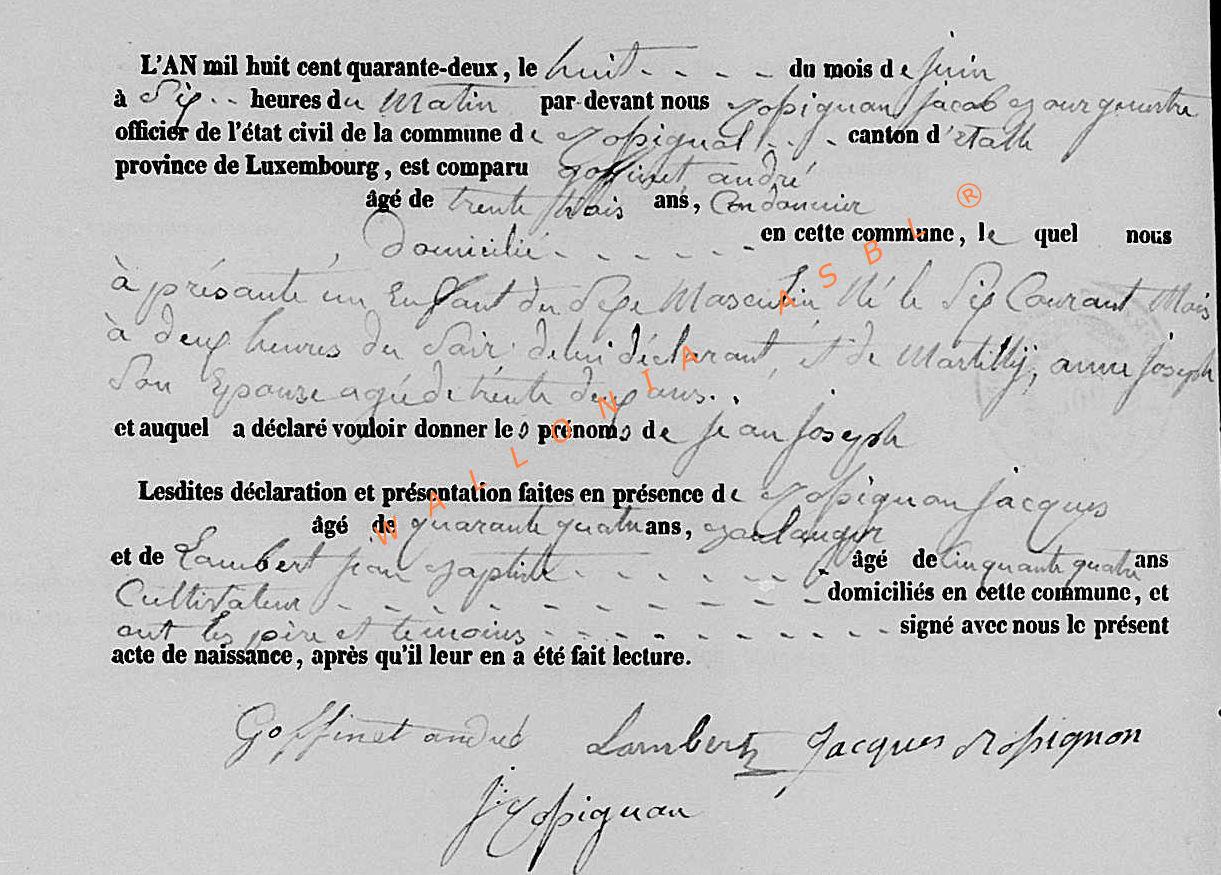 L'AN mil huit cent quarante-deux, le huit - - - - du mois de juin
à Six - - heures du Matin par-devant nous Rossignon Jacob Bourguemstre
officier de l'état civil de la commune de Rossignol - - - canton d'etalle
province de Luxembourg, est comparu goffinet andré
âgé de trente trois ans, Cordonnier
Domicilié - - - - - - en cette commune, le quel nous
à présanté un Enfant du Sexe Masculin Né le Six Courant Mois
à deux heures du Soir de lui déclarant, et de Martilly, anne joseph
Son Epouse agée de trente deux ans - -
et auquel a déclaré vouloir donner les prénoms de jean joseph
Lesdites déclaration et présentation faites en présence de Rossignon Jacques
âgé de quarante quatre ans, Boulanger
et de Lambert jean Baptiste - - - - - - âgé de Cinquante quatre ans
Cultivateur - - - - - - - - - - - - domiciliés en cette commune, et
ont les père et temoins - - - - - - - - - signé avec nous le présent
acte de naissance, après qu'il leur en a été fait lecture.
Goffinet andré Lambert Jacques Rossignon
j: Rossignon
WALLONIA ASBL ®